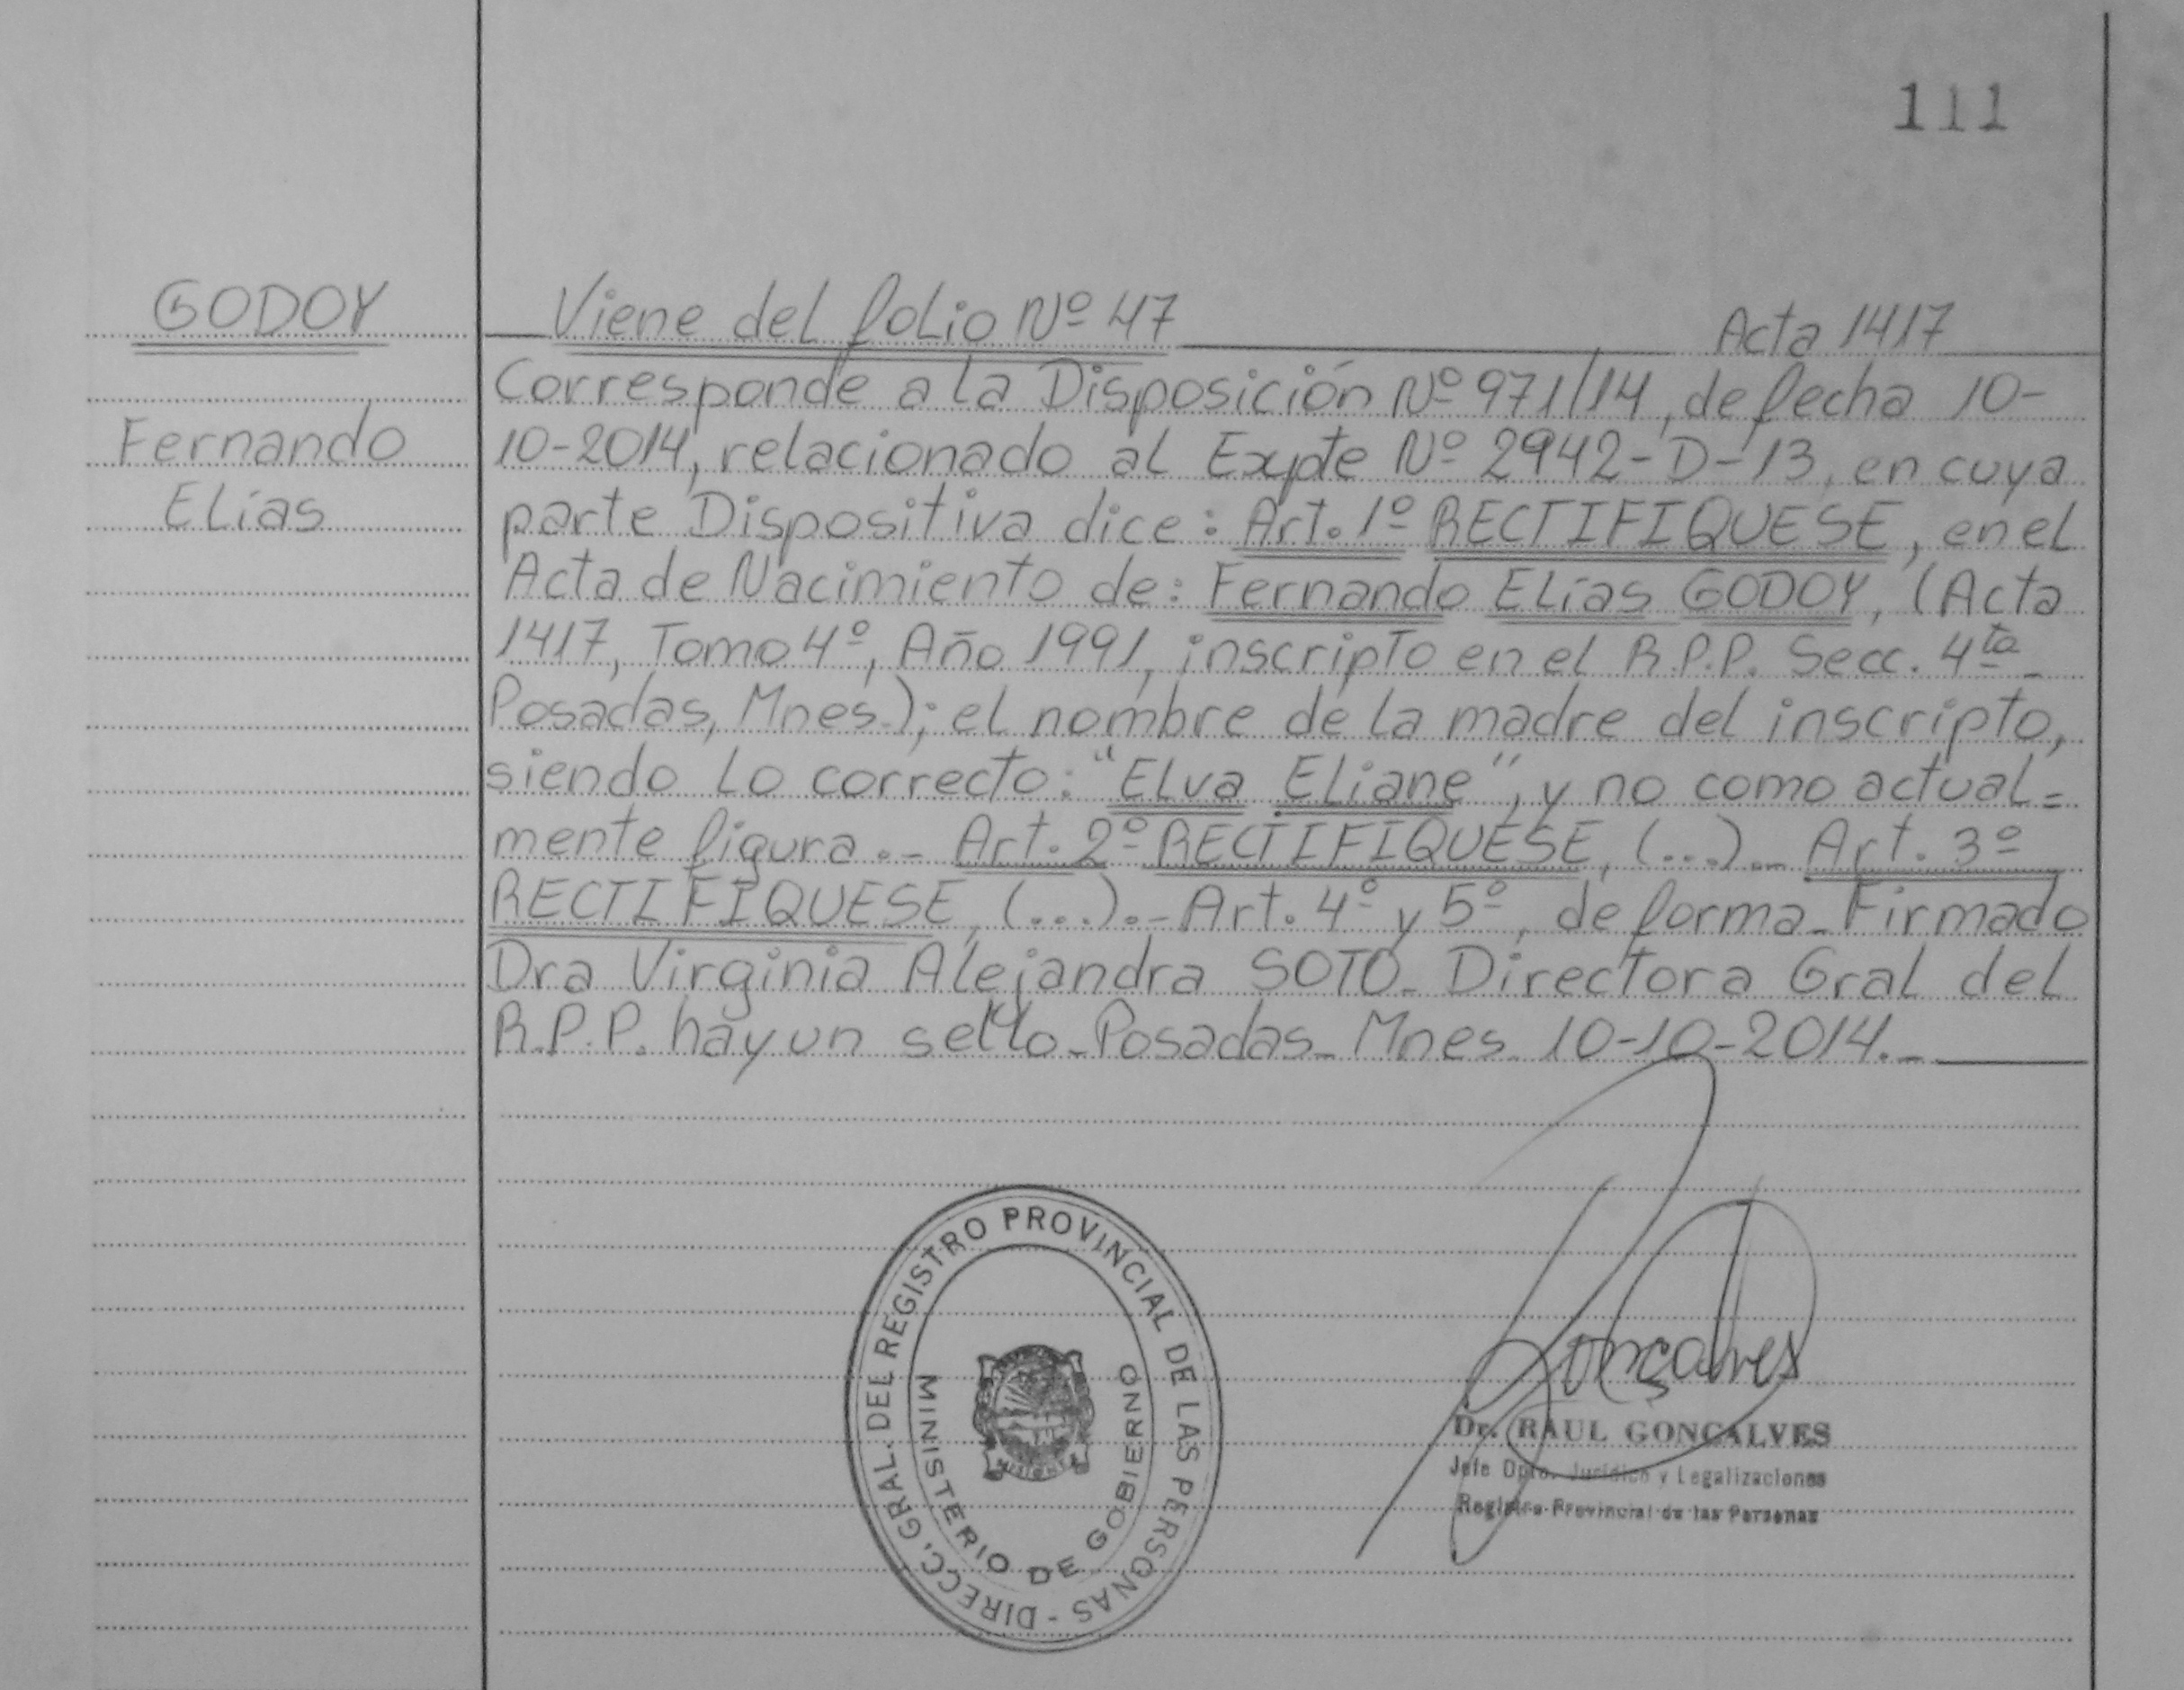 111
GODOY
Fernando
Elías
Viene del folio Nº 47 Acta 1417
Corresponde a la Disposición Nº 971/14, de fecha 10-
10-2014, relacionado al Expte Nº 2942-D-13, en cuya
parte Dispositiva dice: Art. 1º RECTIFIQUESE, en el
Acta de Nacimiento de: Fernando Elías GODOY, (Acta
1417, Tomo 4º, Año 1991, inscripto en el R.P.P. Secc. 4ta
Posadas, Mnes.); el nombre de la madre del inscripto,
siendo lo correcto: "Elva Eliane", y no como actual=
mente figura.- Art. 2º RECTIFIQUESE, (...).- Art. 3º
RECTIFIQUESE, (...).- Art. 4º y 5º, de forma- Firmado
Dra Virginia Alejandra SOTO- Directora Gral del
R.P.P. hay un sello- Posadas- Mnes. 10-10-2014.-
DIRECC. GRAL. DEL REGISTRO PROVINCIAL DE LAS PERSONAS -
MINISTERIO DE GOBIERNO
MISIONES
Gonçalves
Dr. RAUL GONÇALVES
Jefe Dpto. Jurídico y Legalizaciones
Registro Provincial de las Personas